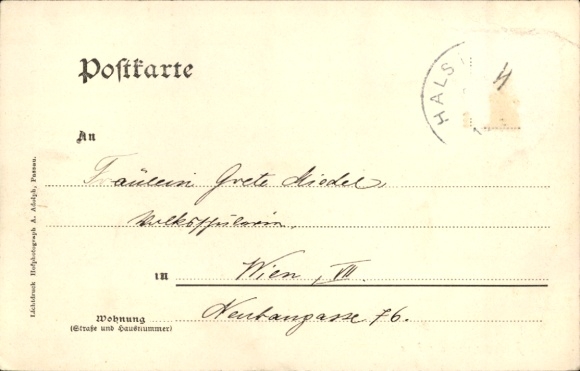 Postkarte
HALS
4
An
Fräulein Grete Miedel,
Volksschülerin,
in Wien, VII.
Neubaugasse 76.
Wohnung
(Straße und Hausnummer)
Lichtdruck Hofphotograph A. Adolph, Passau.